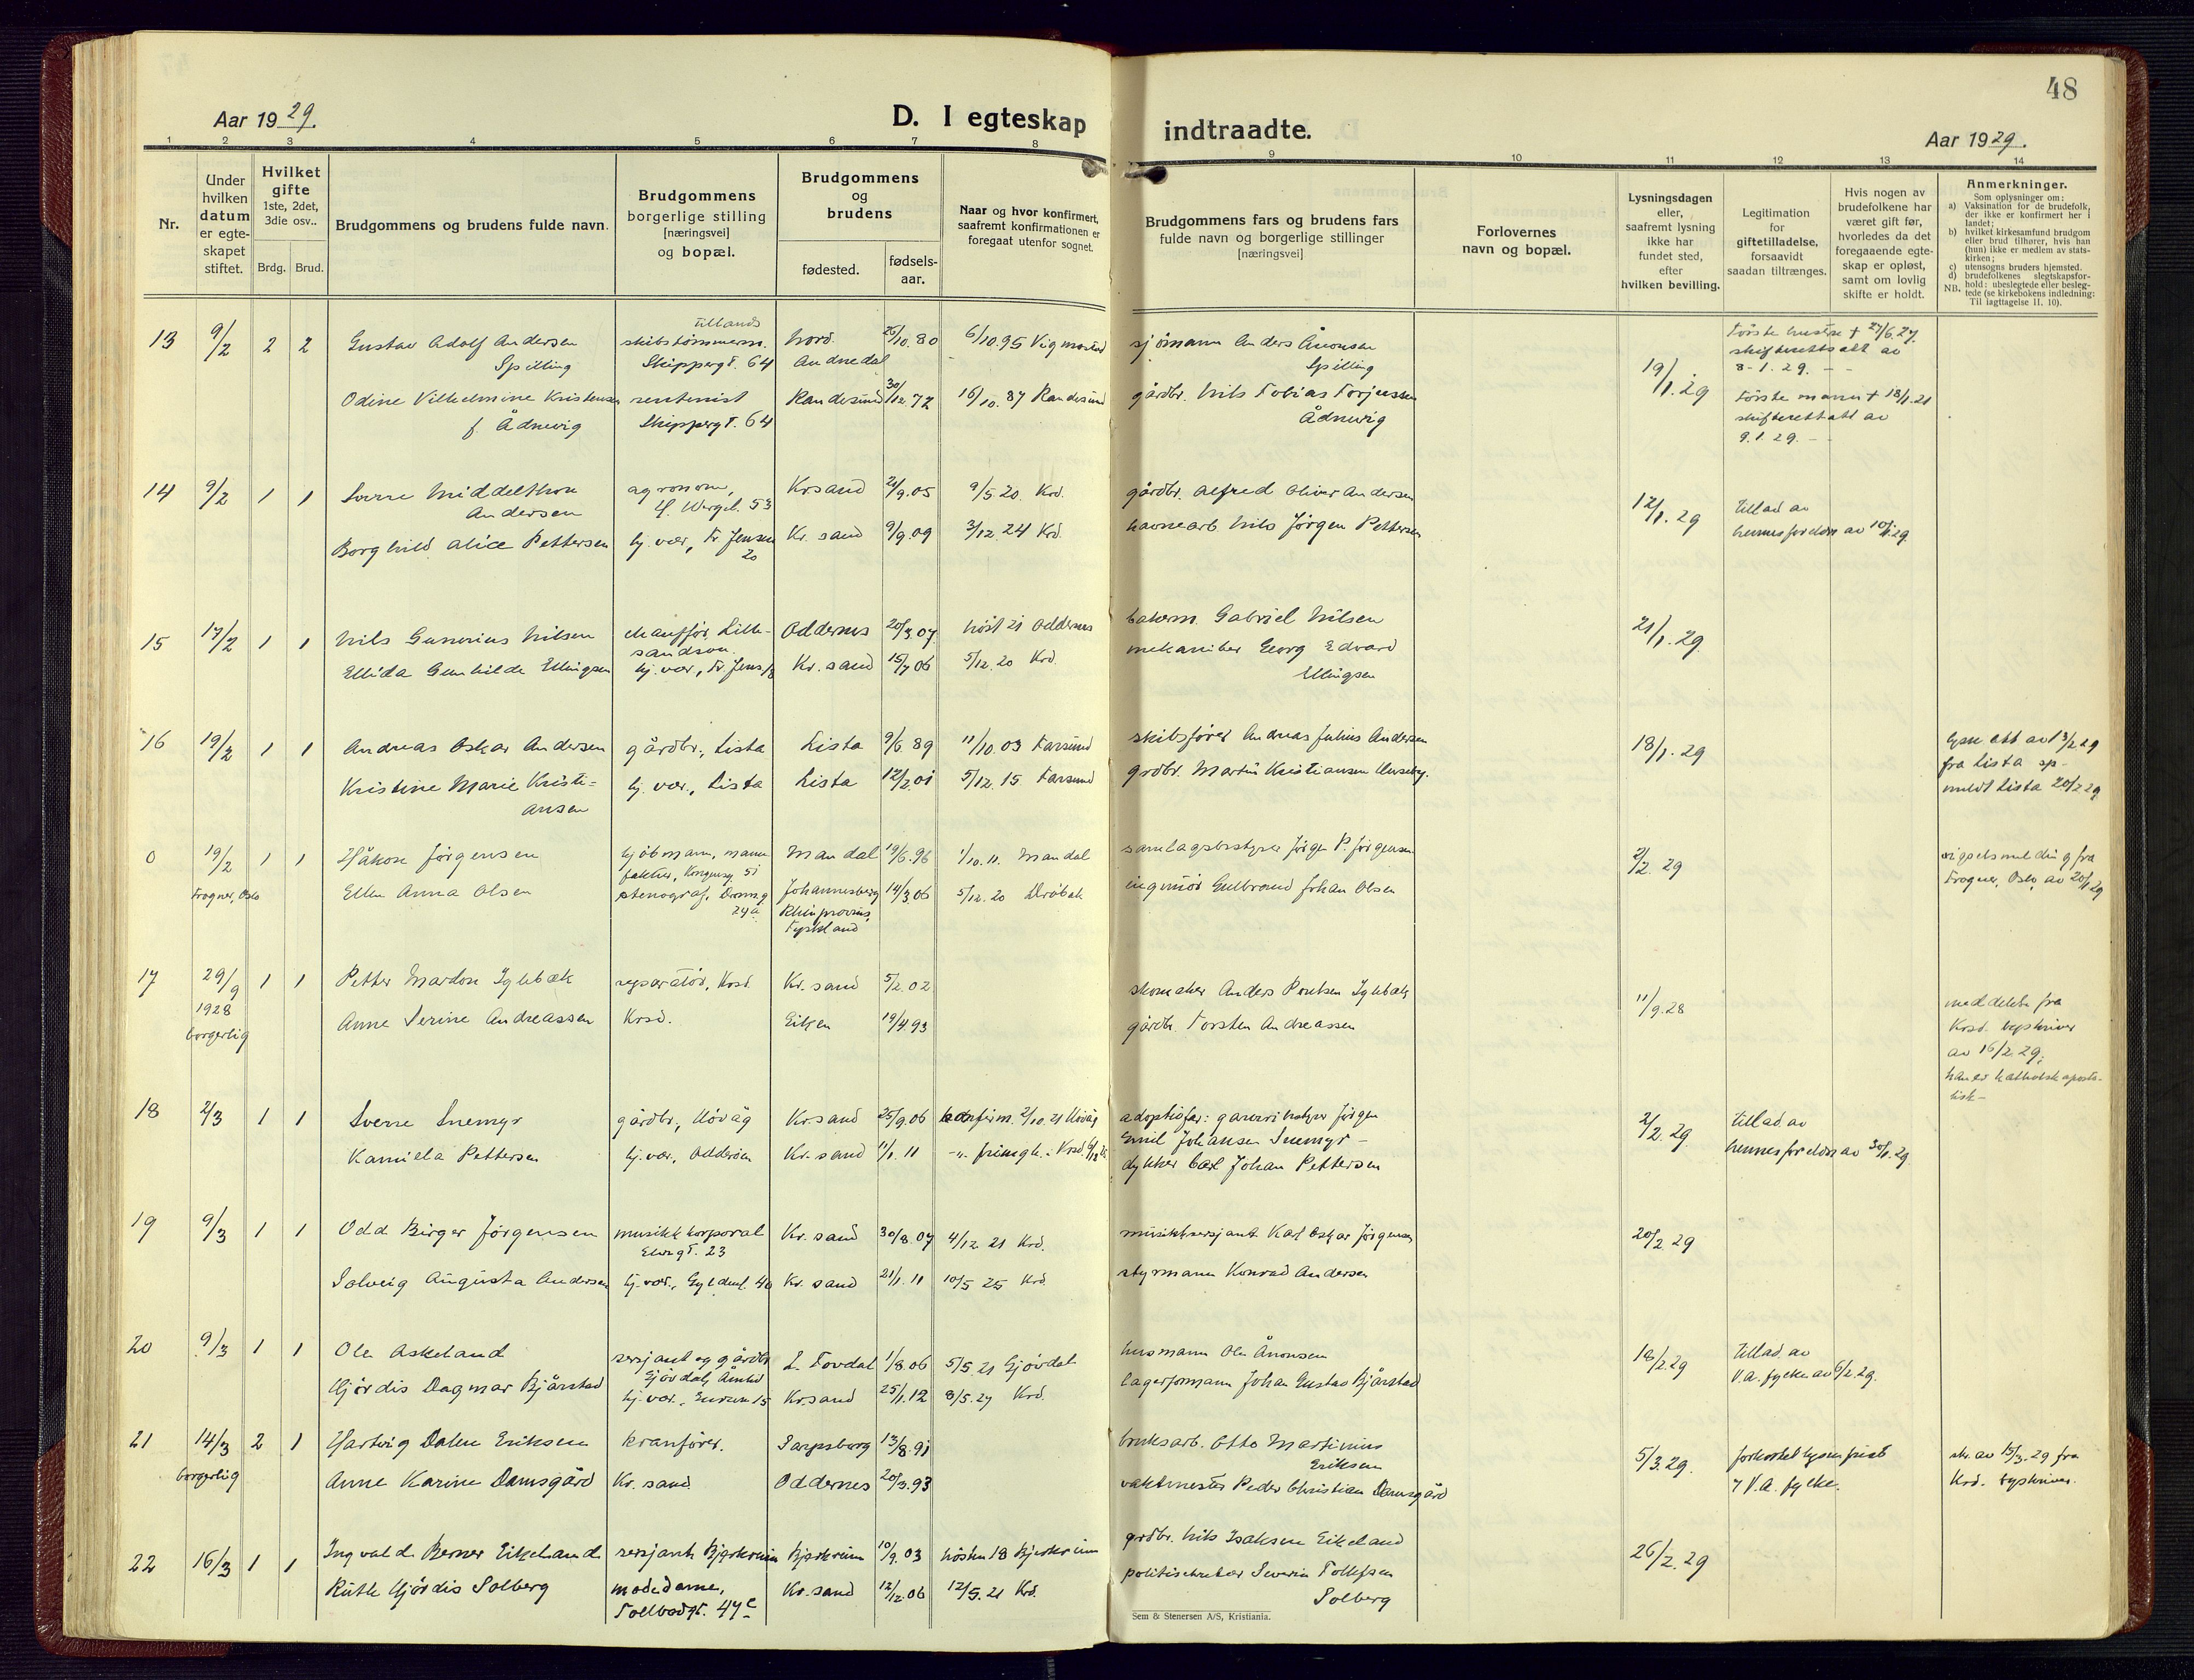 48
Aar 1929.
D. I egteskap indtraadte.
Aar 1929.
1 2 3 4 5 6 7 8 9 10 11 12 13 14
Nr.
Under hvilken datum er egte-skapet stiftet.
Hvilket gifte 1ste, 2det, 3die osv..
Brdg. Brud.
Brudgommens og brudens fulde navn.
Brudgommens borgerlige stilling [næringsvei] og bopæl.
Brudgommens og brudens
fødested. fødsels-aar.
Naar og hvor konfirmert, saafremt konfirmationen er foregaat utenfor sognet.
Brudgommens fars og brudens fars fulde navn og borgerlige stillinger [næringsvei]
Forlovernes navn og bopæl.
Lysningsdagen eller, saafremt lysning ikke har fundet sted, efter hvilken bevilling.
Legitimation for giftetilladelse, forsaavidt saadan tiltrænges.
Hvis nogen av brudefolkene har været gift før, hvorledes da det foregaaende egte-skap er opløst, samt om lovlig skifte er holdt.
Anmerkninger.
Som oplysninger om:
a) Vaksination for de brudefolk, der ikke er konfirmert her i landet;
b) hvilket kirkesamfund brudgom eller brud tilhører, hvis han (hun) ikke er medlem av stats-kirken;
c) utensogns bruders hjemsted.
d) brudefolkenes slegtskapsfor-hold: ubeslegtede eller besleg-tede (se kirkebokens indledning:
NB. Til iagttagelse II. 10).
13 9/2 2 2 Gustav Adolf Andersen skibstømmerm. tillands Nord. 26/10.80 6/10.95 Vigmostad sjømann Anders Ånonsen 19/1.29 Første hustru + 27/6.27.
Spilling Skippergt. 64 Audnedal Spilling skifterettsatt av
8-1.29. - -
Odine Vilhelmine Kristensen rentenist Randesund 30/12.72 16/10.87 Randesund gårdbr. Nils Tobias Torjussen Første mann + 18/1.21
f. Ådnevig Skippergt. 64 Ådnevig skifterettatt av
9.1.29. - -
14 9/2 1 1 Sverre Middelthon agronom, Krsand 21/9.05 9/5.20. Krd. gårdbr. Alfred Oliver Andersen 12/1.29 tillad. av
Andersen H. Wergel. 53 hennes foreldre av 10/1.29.
Borghild Alice Pettersen hj. vær, Fr. Jensen 20 Kr. sand 9/9.09 3/12.24 Krd. havnearb Nils Jørgen Pettersen
15 17/2 1 1 Nils Gunerius Nilsen chauffør, Lille- Oddernes 20/3.07 høst 21 Oddernes bakerm. Gabriel Nilsen 21/1.29.
sandson.
Ellida Gunhilde Ellingsen hj. vær, Fr. Jens. 18 Kr. sand 15/7.06 5/12.20 Krd. mekaniker Georg Edvard
Ellingsen
16 19/2 1 1 Andreas Oskar Andersen gårdbr., Lista Lista 9/6.89 11/10.03 Farsund skibsfører Andreas Julius Andersen 18/1.29 lysn. att av 13/2 29
fra Lista sp-
Kristine Marie Kristi- hj. vær., Lista Lista 12/2.01 5/12.15 Farsund grdbr. Martin Kristiansen Huseby. meldt Lista 20/2 29
ansen
0 19/2 1 1 Håkon Jørgensen kjøbmann, manu- Mandal 19/6.96 1/10.11. Mandal samlagsbestyrer Jørgen P. Jørgensen 2/2.29 vigselsmelding fra
faktur, Kongensg. 51 Frogner, Oslo, av 20/2 29
Frogner, Oslo Ellen Anna Olsen stenograf, Dronng. 24a Johannesberg 14/3.06 5/12.20 Drøbak ingeniør Gulbrand Johan Olsen
Rhinprovins,
Tyskland
17 29/9 1 1 Petter Mardon Iglebæk reparatør, Krsd. Kr. sand 5/2.02 skomaker Anders Poulsen Iglebæk 11/9.28 meddelelse fra
1928 Krsd. byskriver
borgerlig Anne Serine Andreassen Krsd. Eiken 19/4.93 gårdbr. Torsten Andreassen av 16/2.29;
han er katholsk aposto-
lisk-
18 2/3 1 1 Sverre Snemyr gårdbr., Høvåg Kr.sand 25/9.06 konfirm. 2/10.21 Høvåg adoptivfar: garveribestyrer Jørgen 2/2.29 tillad. av
Emil Johansen Snemyr - hennes foreldre av 30/1.29.
Kamilla Pettersen hj. vær., Odderøen Kr. sand 11/1.11 -"- dykker Carl Johan Pettersen
19 9/3 1 1 Odd Birger Jørgensen musikkkorporal Kr. sand 30/8.07 4/12.21 Krd. musikksersjant Karl Oskar Jørgensen 20/2.29
Elvegt. 23
Solveig Augusta Andersen hj. vær., Gyldenl. 40 Kr. sand 21/1.11 10/5 25 Krd. styrmann Konrad Andersen
20 9/3 1 1 Ole Askeland sersjant og gårdbr. L. Tovdal 1/8.06 5/5.21 Gjøvdal husmann Ole Ånonsen 18/2.29 tillad. av
Gjøvdal, Åmlid V.A. fylke av 6/2.29.
Hjørdis Dagmar Bjårstad hj. vær., 15 Kr.sand 25/1.12 8/5.27 Krd. lagerformann Johan Gustav Bjårstad
21 14/3 2 1 Hartvig Dalen Eriksen kranfører. Sarpsborg 13/8.91 bruksarb. Otto Martinius 5/3.29. forkortet lysn.frist skr. av 15/3.29 fra
Eriksen
borgerlig Anne Karine Damsgård Kr. sand. Oddernes 20/3.93 vaktmester Peder Christian Damsgård V.A. fylke. Krd. byskriver.
22 16/3 1 1 Ingvald Berner Eikeland sersjant Bjerkreim Bjerkreim 10/9.03 høsten 18 Bjerkreim grdbr. Nils Isaksen Eikeland 26/2.29
Ruth Hjørdis Solberg modedame, Kr. sand 12/12.06 12/5.21 Krd. politisekretær Severin Tollefsen
Tollbodgt. 47c Solberg
Sem & Stenersen A/S, Kristiania.